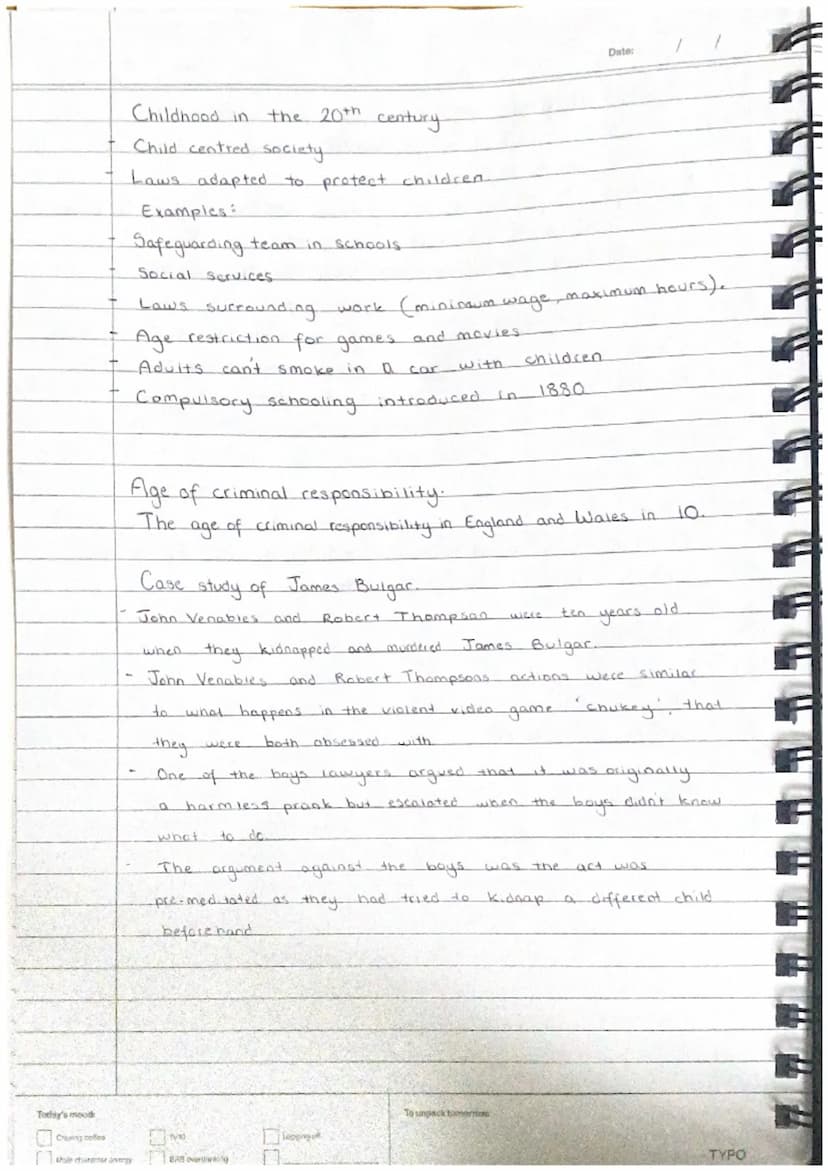 Date: / /
Childhood in the 20th century
- Child centred society
- Laws adapted to protect children
Examples:
- Safeguarding team in schools
- Social services
- Laws surrounding work (minimum wage, maximum hours).
- Age restriction for games and movies
- Adults can't smoke in a car with children
- Compulsory schooling introduced in 1880
Age of criminal responsibility.
The age of criminal responsibility in England and Wales in 10.
Case study of James Bulgar.
- John Venables and Robert Thompson were ten years old
when they kidnapped and murdered James Bulgar.
- John Venables and Robert Thompsons actions were similar
to what happens in the violent video game 'chukey', that
they were both obsessed with
- One of the boys lawyers argued that it was originally
a harmless prank but escalated when the boys didn't know
what to do.
- The argument against the boys was the act was
pre-mediated as they had tried to kidnap a different child
beforehand
Today's mood:
To unpack tomorrow:
Craving coffee
11/10
Logging off
Main character energy
BRB overthinking
TYPO